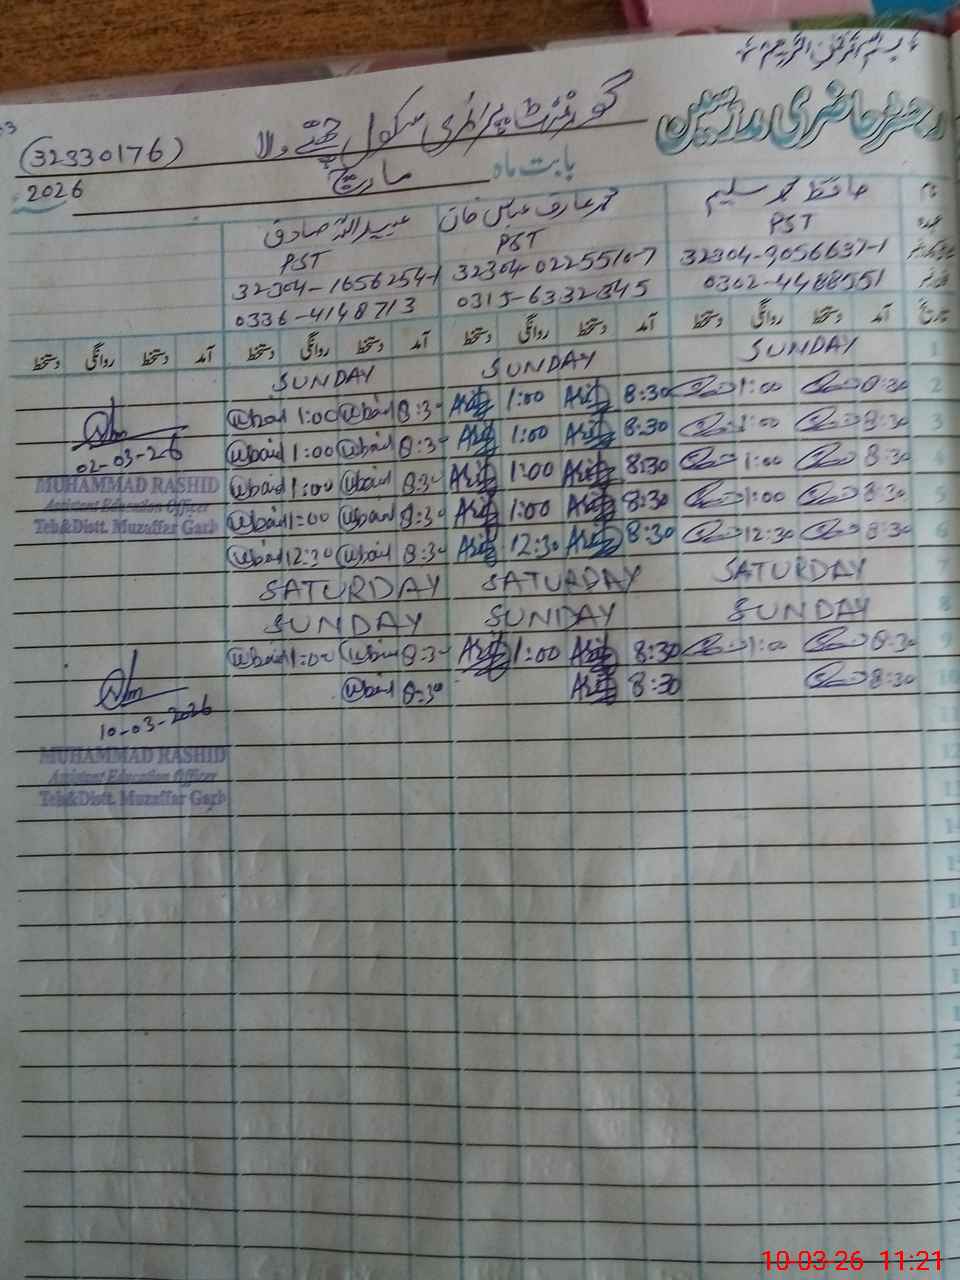 بسم اللہ الرحمن الرحیم
رجسٹر حاضری مدرسین
گورنمنٹ پرائمری سکول والا (32330176)
بابت ماہ مارچ 2026
نام حافظ محمد سلیم محمد عارف عباس خان عبید اللہ صادق
عہدہ PST PST PST
32304-9056637-1 32304-0225510-7 32304-1656254-1
0302-4488551 0315-6332345 0336-4148713
تاریخ آمد دستخط روانگی دستخط آمد دستخط روانگی دستخط آمد دستخط روانگی دستخط آمد دستخط روانگی دستخط
1 SUNDAY SUNDAY SUNDAY
2 8:30 1:00 8:30 Arif 1:00 Arif 8:30 Ubaid 1:00 Ubaid
3 8:30 1:00 8:30 Arif 1:00 Arif 8:30 Ubaid 1:00 Ubaid
02-03-26
4 8:30 1:00 8:30 Arif 1:00 Arif 8:30 Ubaid 1:00 Ubaid
MUHAMMAD RASHID
Assistant Education Officer
Teh&Distt. Muzaffar Garh
5 8:30 1:00 8:30 Arif 1:00 Arif 8:30 Ubaid 1:00 Ubaid
6 8:30 12:30 8:30 Arif 12:30 Arif 8:30 Ubaid 12:30 Ubaid
7 SATURDAY SATURDAY SATURDAY
8 SUNDAY SUNDAY SUNDAY
9 8:30 1:00 8:30 Arif 1:00 Arif 8:30 Ubaid 1:00 Ubaid
10 8:30 8:30 Arif 8:30 Ubaid
10-03-2026
11
MUHAMMAD RASHID
Assistant Education Officer
Teh&Distt. Muzaffar Garh
12
13
14
15
10 03 26 11:21